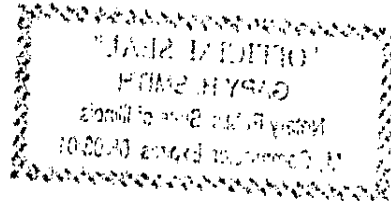 "OFFICIAL SEAL"
GARY H. SMITH
Notary Public State of Illinois
My Commission Expires